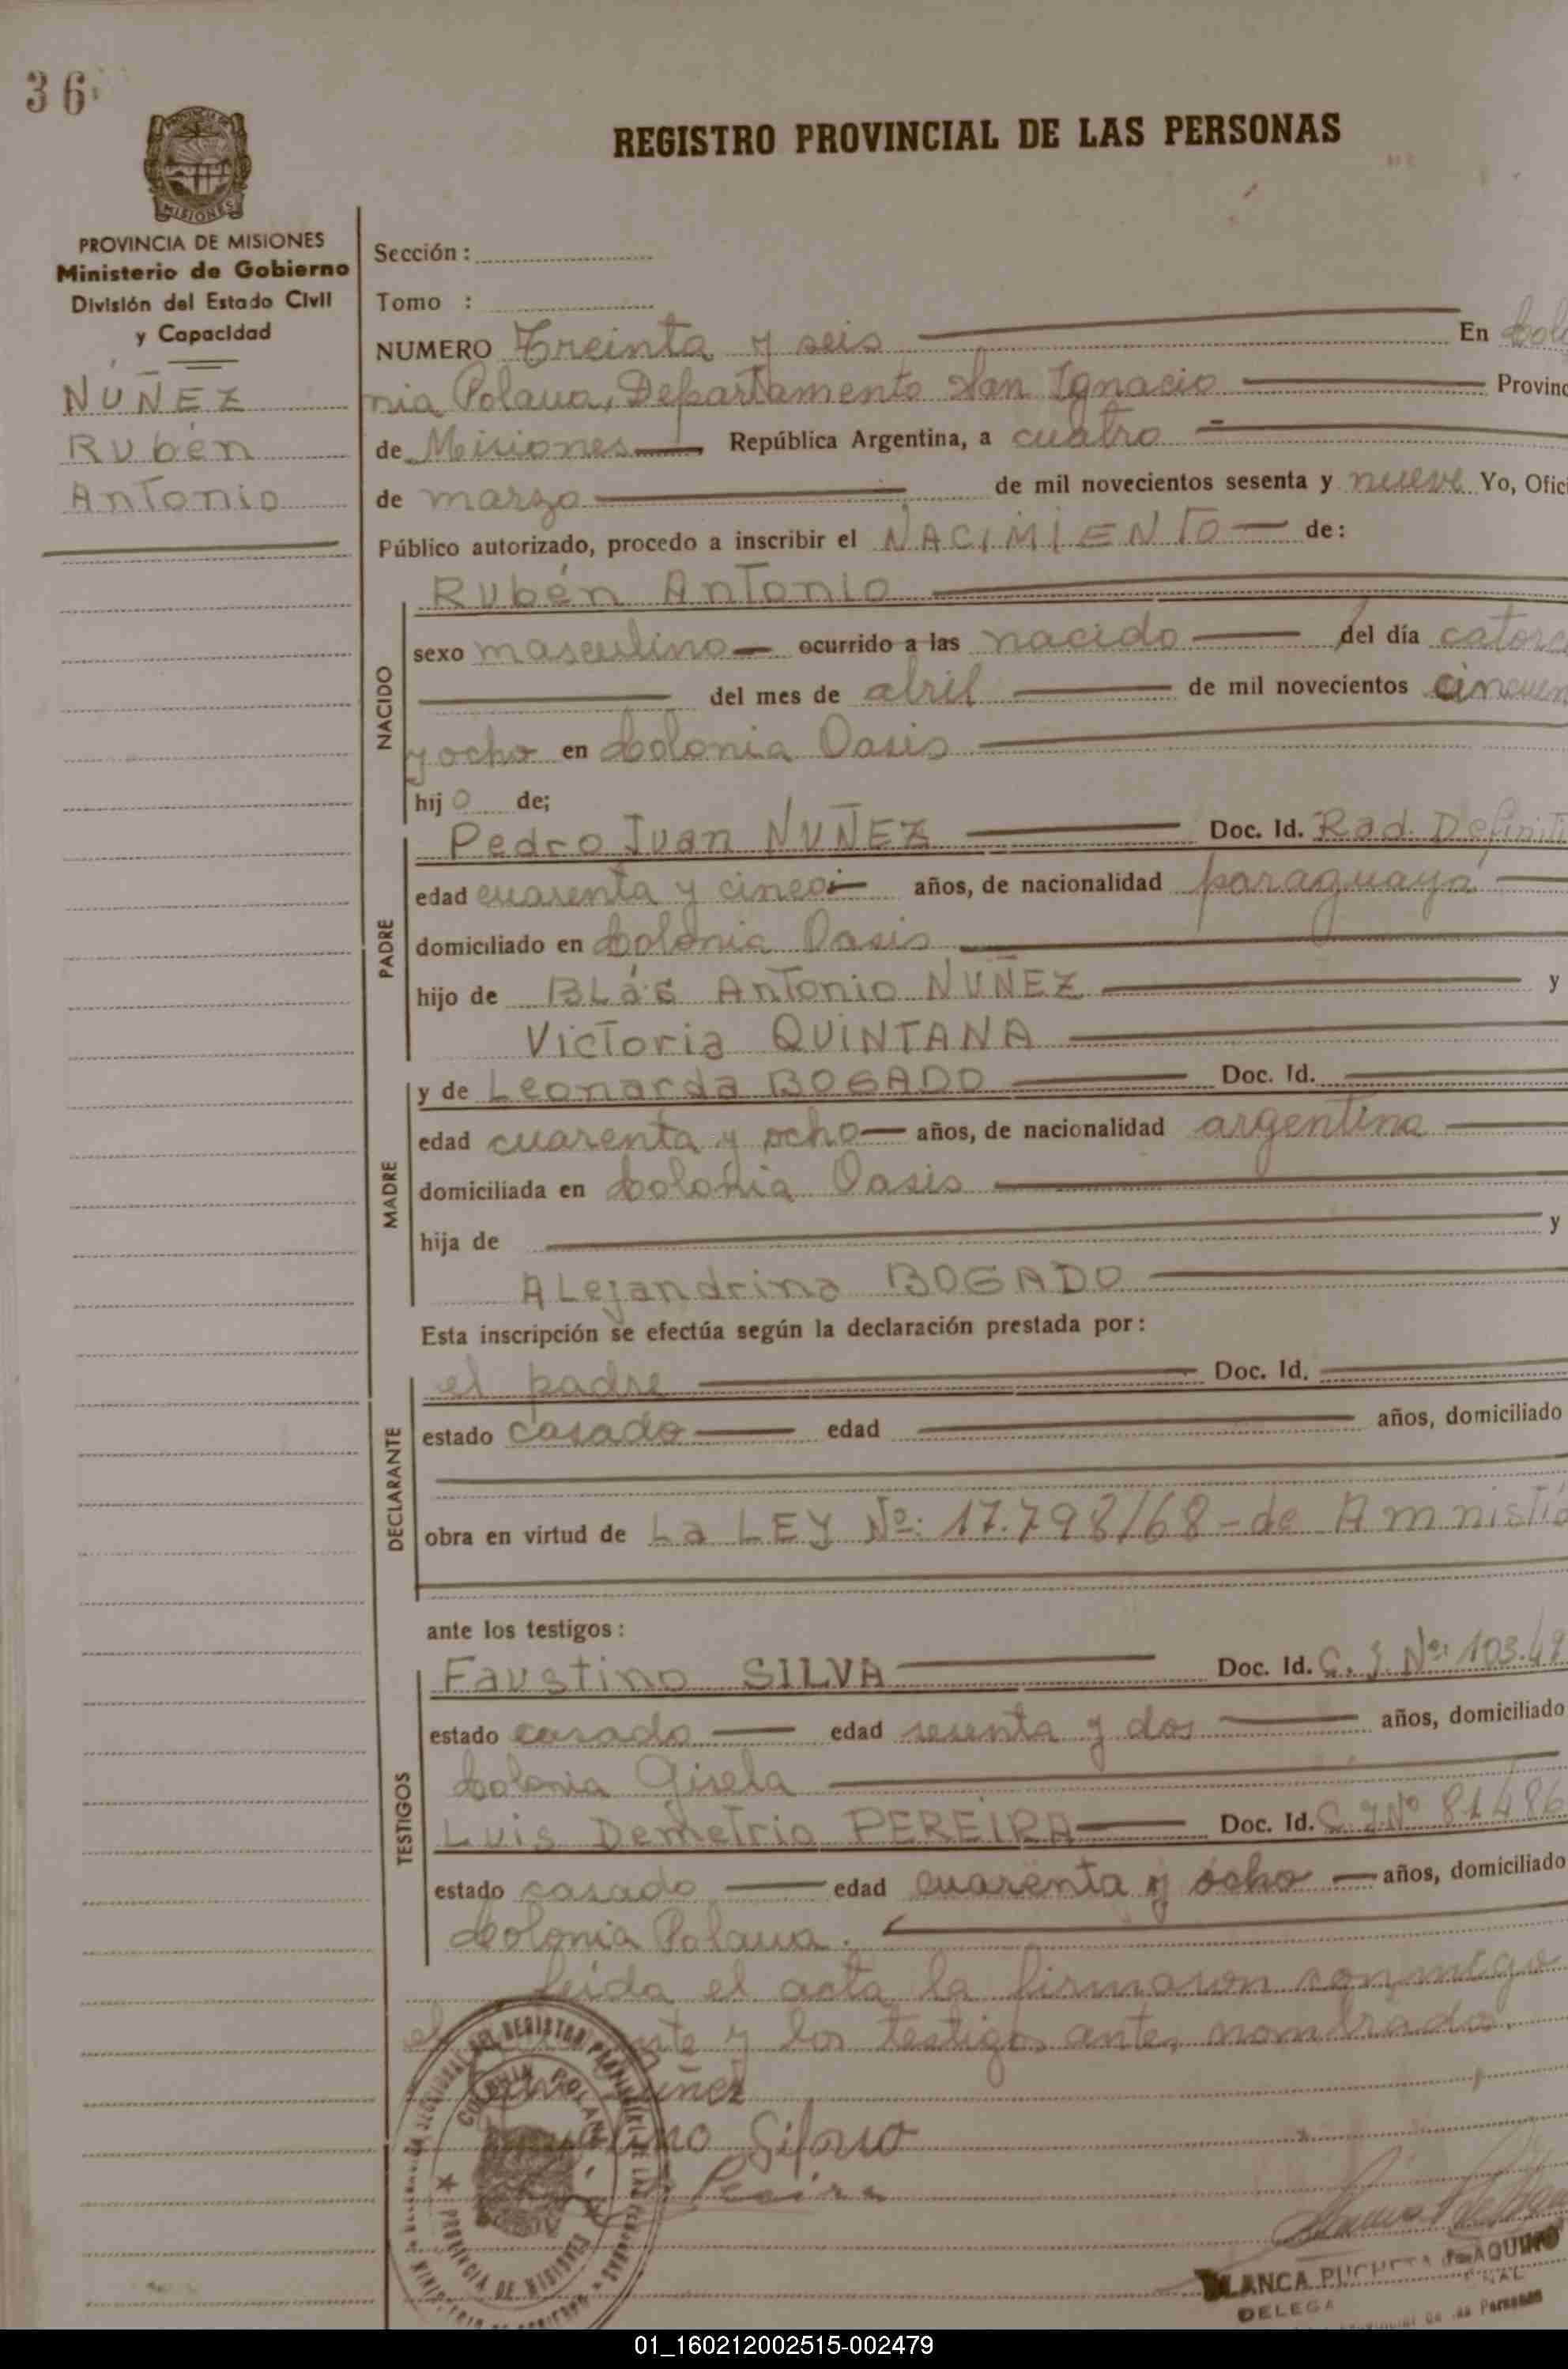 36
REGISTRO PROVINCIAL DE LAS PERSONAS
MISIONES
PROVINCIA DE MISIONES
Ministerio de Gobierno
División del Estado Civil
y Capacidad
NUÑEZ
Rubén
Antonio
Sección:
Tomo :
NUMERO Treinta y seis En Colo
nia Polana, Departamento San Ignacio Provinc
de Misiones República Argentina, a cuatro
de marzo de mil novecientos sesenta y nueve Yo, Ofici
Público autorizado, procedo a inscribir el NACIMIENTO de:
NACIDO
Rubén Antonio
sexo masculino ocurrido a las nacido del día catorc
del mes de abril de mil novecientos cincuen
y ocho en Colonia Oasis
hijo de;
PADRE
Pedro Juan NUÑEZ Doc. Id. Rad. Definiti
edad cuarenta y cinco años, de nacionalidad paraguaya
domiciliado en Colonia Oasis
hijo de BLás Antonio NUÑEZ y
Victoria QUINTANA
MADRE
y de Leonarda BOGADO Doc. Id.
edad cuarenta y ocho años, de nacionalidad argentina
domiciliada en Colonia Oasis
hija de y
ALejandrina BOGADO
Esta inscripción se efectúa según la declaración prestada por:
DECLARANTE
el padre Doc. Id.
estado casado edad años, domiciliado
obra en virtud de La LEY Nº: 17.798/68-de Amnistía
ante los testigos:
TESTIGOS
Faustino SILVA Doc. Id. C. I Nº: 103.49
estado casado edad sesenta y dos años, domiciliado
Colonia Gisela
Luis Demetrio PEREIRA Doc. Id. C. I. Nº 81486
estado casado edad cuarenta y ocho años, domiciliado
Colonia Polana.
Leida el acta la firmaron conmigo
el y los testigos antes nombrados.
Silva
Pereira
COLONIA POLANA
PROVINCIA DE MISIONES
BLANCA PUCHETA de AQUINO
DELEGA
de las Personas
01_160212002515-002479